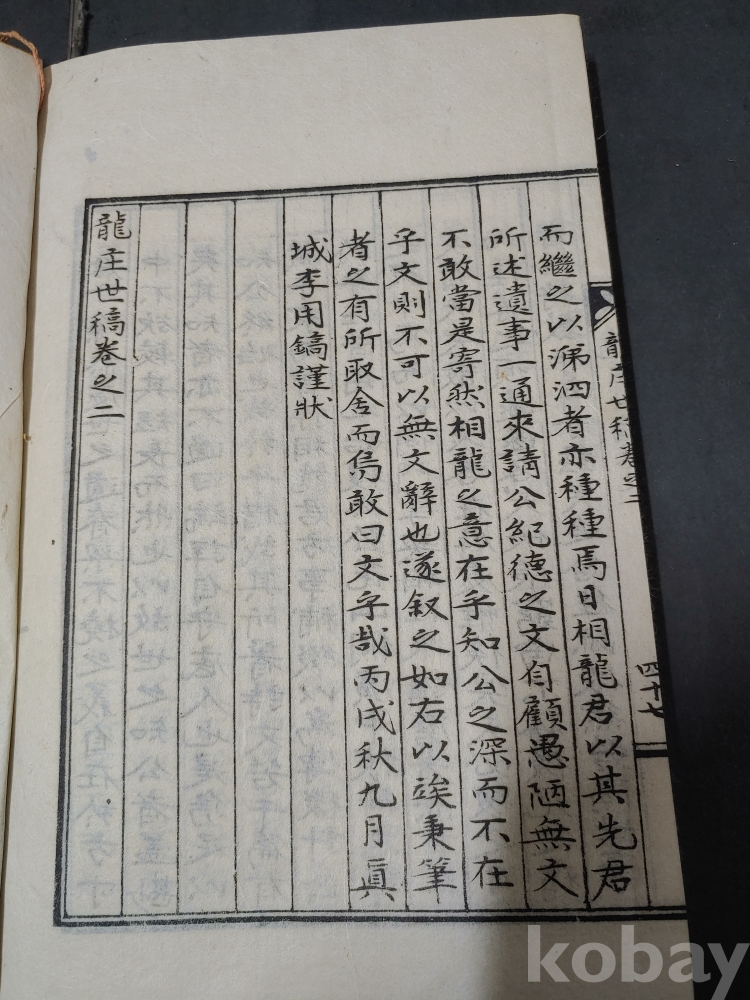 而繼之以涕泗者亦種種焉日相龍君以其先君
所述遺事一通來請公紀德之文自顧愚陋無文
不敢當是寄然相龍之意在乎知公之深而不在
乎文則不可以無文辭也遂叙之如右以竢秉筆
者之有所取舍而焉敢曰文乎哉丙戌秋九月眞
城李用鎬謹狀
龍庄世稿卷之二
龍庄世稿卷之二
四十七
kobay